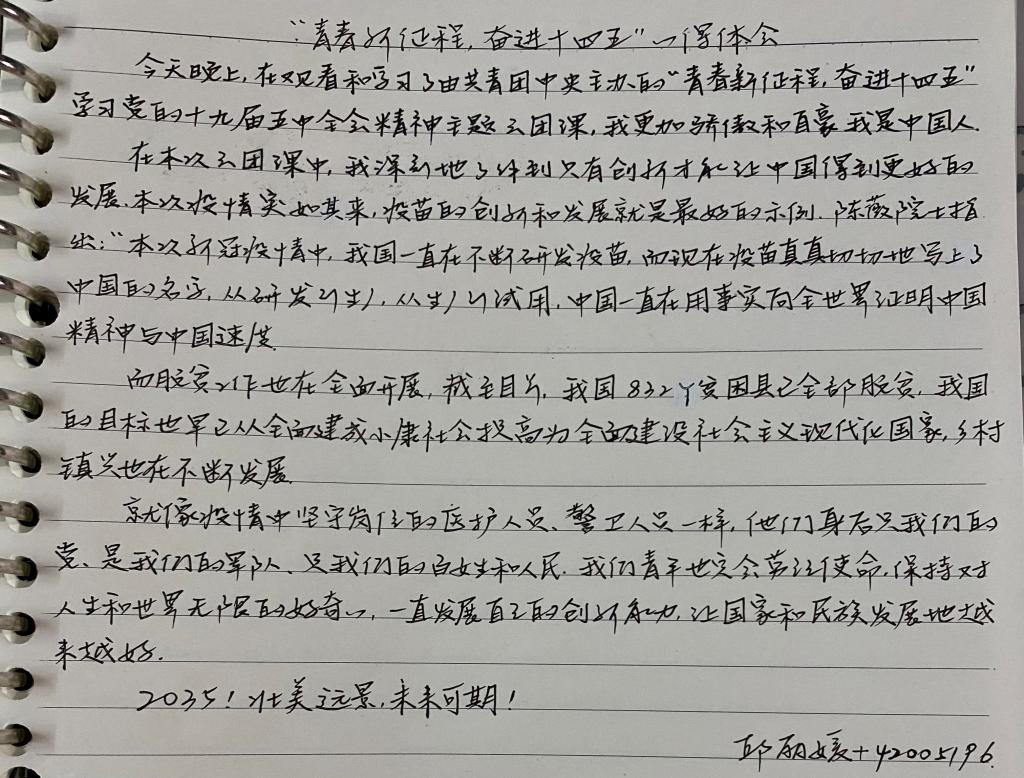 “青春新征程,奋进十四五”心得体会
今天晚上,在观看和学习了由共青团中央主办的“青春新征程,奋进十四五”
学习党的十九届五中全会精神主题云团课,我更加骄傲和自豪我是中国人.
在本次云团课中,我深刻地了体到只有创新才能让中国得到更好的
发展.本次疫情突如其来,疫苗的创新和发展就是最好的示例.陈薇院士指
出:“本次新冠疫情中,我国一直在不断研发疫苗,而现在疫苗真真切切地写上了
中国的名字,从研发到生产,从生产到试用,中国一直在用事实向全世界证明中国
精神与中国速度.
而脱贫工作也在全面开展,截至目前,我国832个贫困县已全部脱贫,我国
的目标也早已从全面建成小康社会提高为全面建设社会主义现代化国家,乡村
镇兴也在不断发展.
就像疫情中坚守岗位的医护人员、警卫人员一样,他们身后是我们的
党、是我们的军队、是我们的白衣和人民.我们青年也定会牢记使命,保持对
人生和世界无限的好奇心,一直发展自己的创新能力,让国家和民族发展地越
来越好.
2035!壮美远景,未来可期!
邱丽媛+42005196.